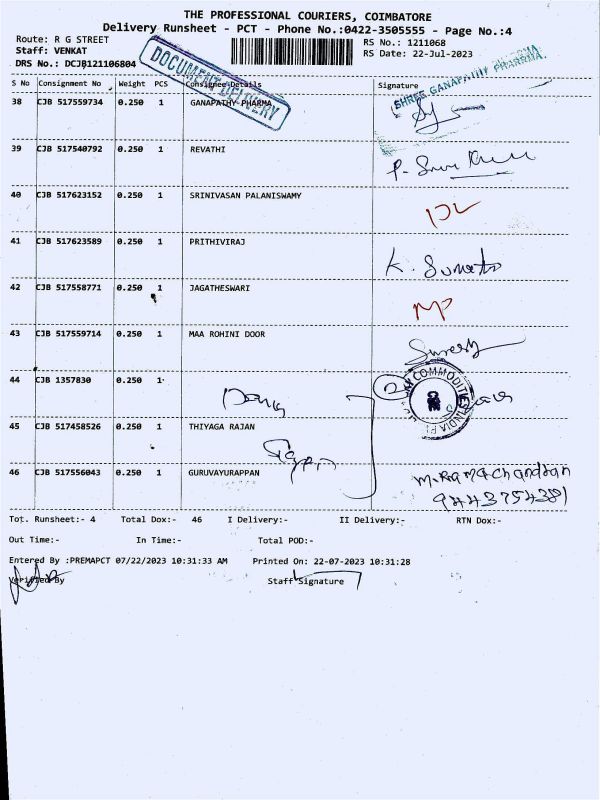 THE PROFESSIONAL COURIERS, COIMBATORE
Delivery Runsheet - PCT - Phone No.:0422-3505555 - Page No.:4
Route: R G STREET RS No.: 1211068
Staff: VENKAT RS Date: 22-Jul-2023
DRS No.: DCJB121106804
DOCUMENT DELIVERY
SHREE GANAPATHY PHARMA.
S No Consignment No Weight PCS Consignee Details Signature
38 CJB 517559734 0.250 1 GANAPATHY PHARMA
39 CJB 517540792 0.250 1 REVATHI
40 CJB 517623152 0.250 1 SRINIVASAN PALANISWAMY
41 CJB 517623589 0.250 1 PRITHIVIRAJ
42 CJB 517558771 0.250 1 JAGATHESWARI
MP
43 CJB 517559714 0.250 1 MAA ROHINI DOOR
Suresh
44 CJB 1357830 0.250 1
COMMODITIES INDIA
45 CJB 517458526 0.250 1 THIYAGA RAJAN
46 CJB 517556043 0.250 1 GURUVAYURAPPAN
M.Ramachandran
9443754381
Tot. Runsheet:- 4 Total Dox:- 46 I Delivery:- II Delivery:- RTN Dox:-
Out Time:- In Time:- Total POD:-
Entered By :PREMAPCT 07/22/2023 10:31:33 AM Printed On: 22-07-2023 10:31:28
Verified By Staff Signature